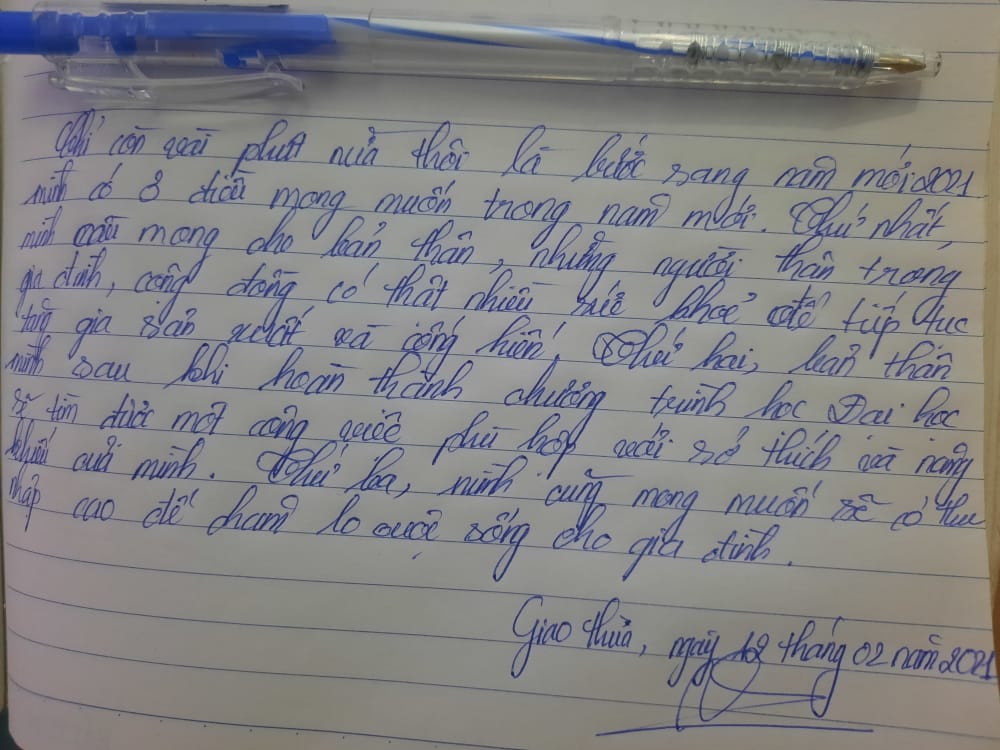 Chỉ còn vài phút nữa thôi là bước sang năm mới 2021
mình có 3 điều mong muốn trong năm mới. Thứ nhất,
mình cầu mong cho bản thân, những người thân trong
gia đình, cộng đồng có thật nhiều sức khoẻ để tiếp tục
tăng gia sản xuất và cống hiến. Thứ hai, bản thân
mình sau khi hoàn thành chương trình học Đại học
sẽ tìm được một công việc phù hợp với sở thích và năng
khiếu của mình. Thứ ba, mình cũng mong muốn sẽ có thu
nhập cao để chăm lo cuộc sống cho gia đình.
Giao thừa, ngày 12 tháng 02 năm 2021